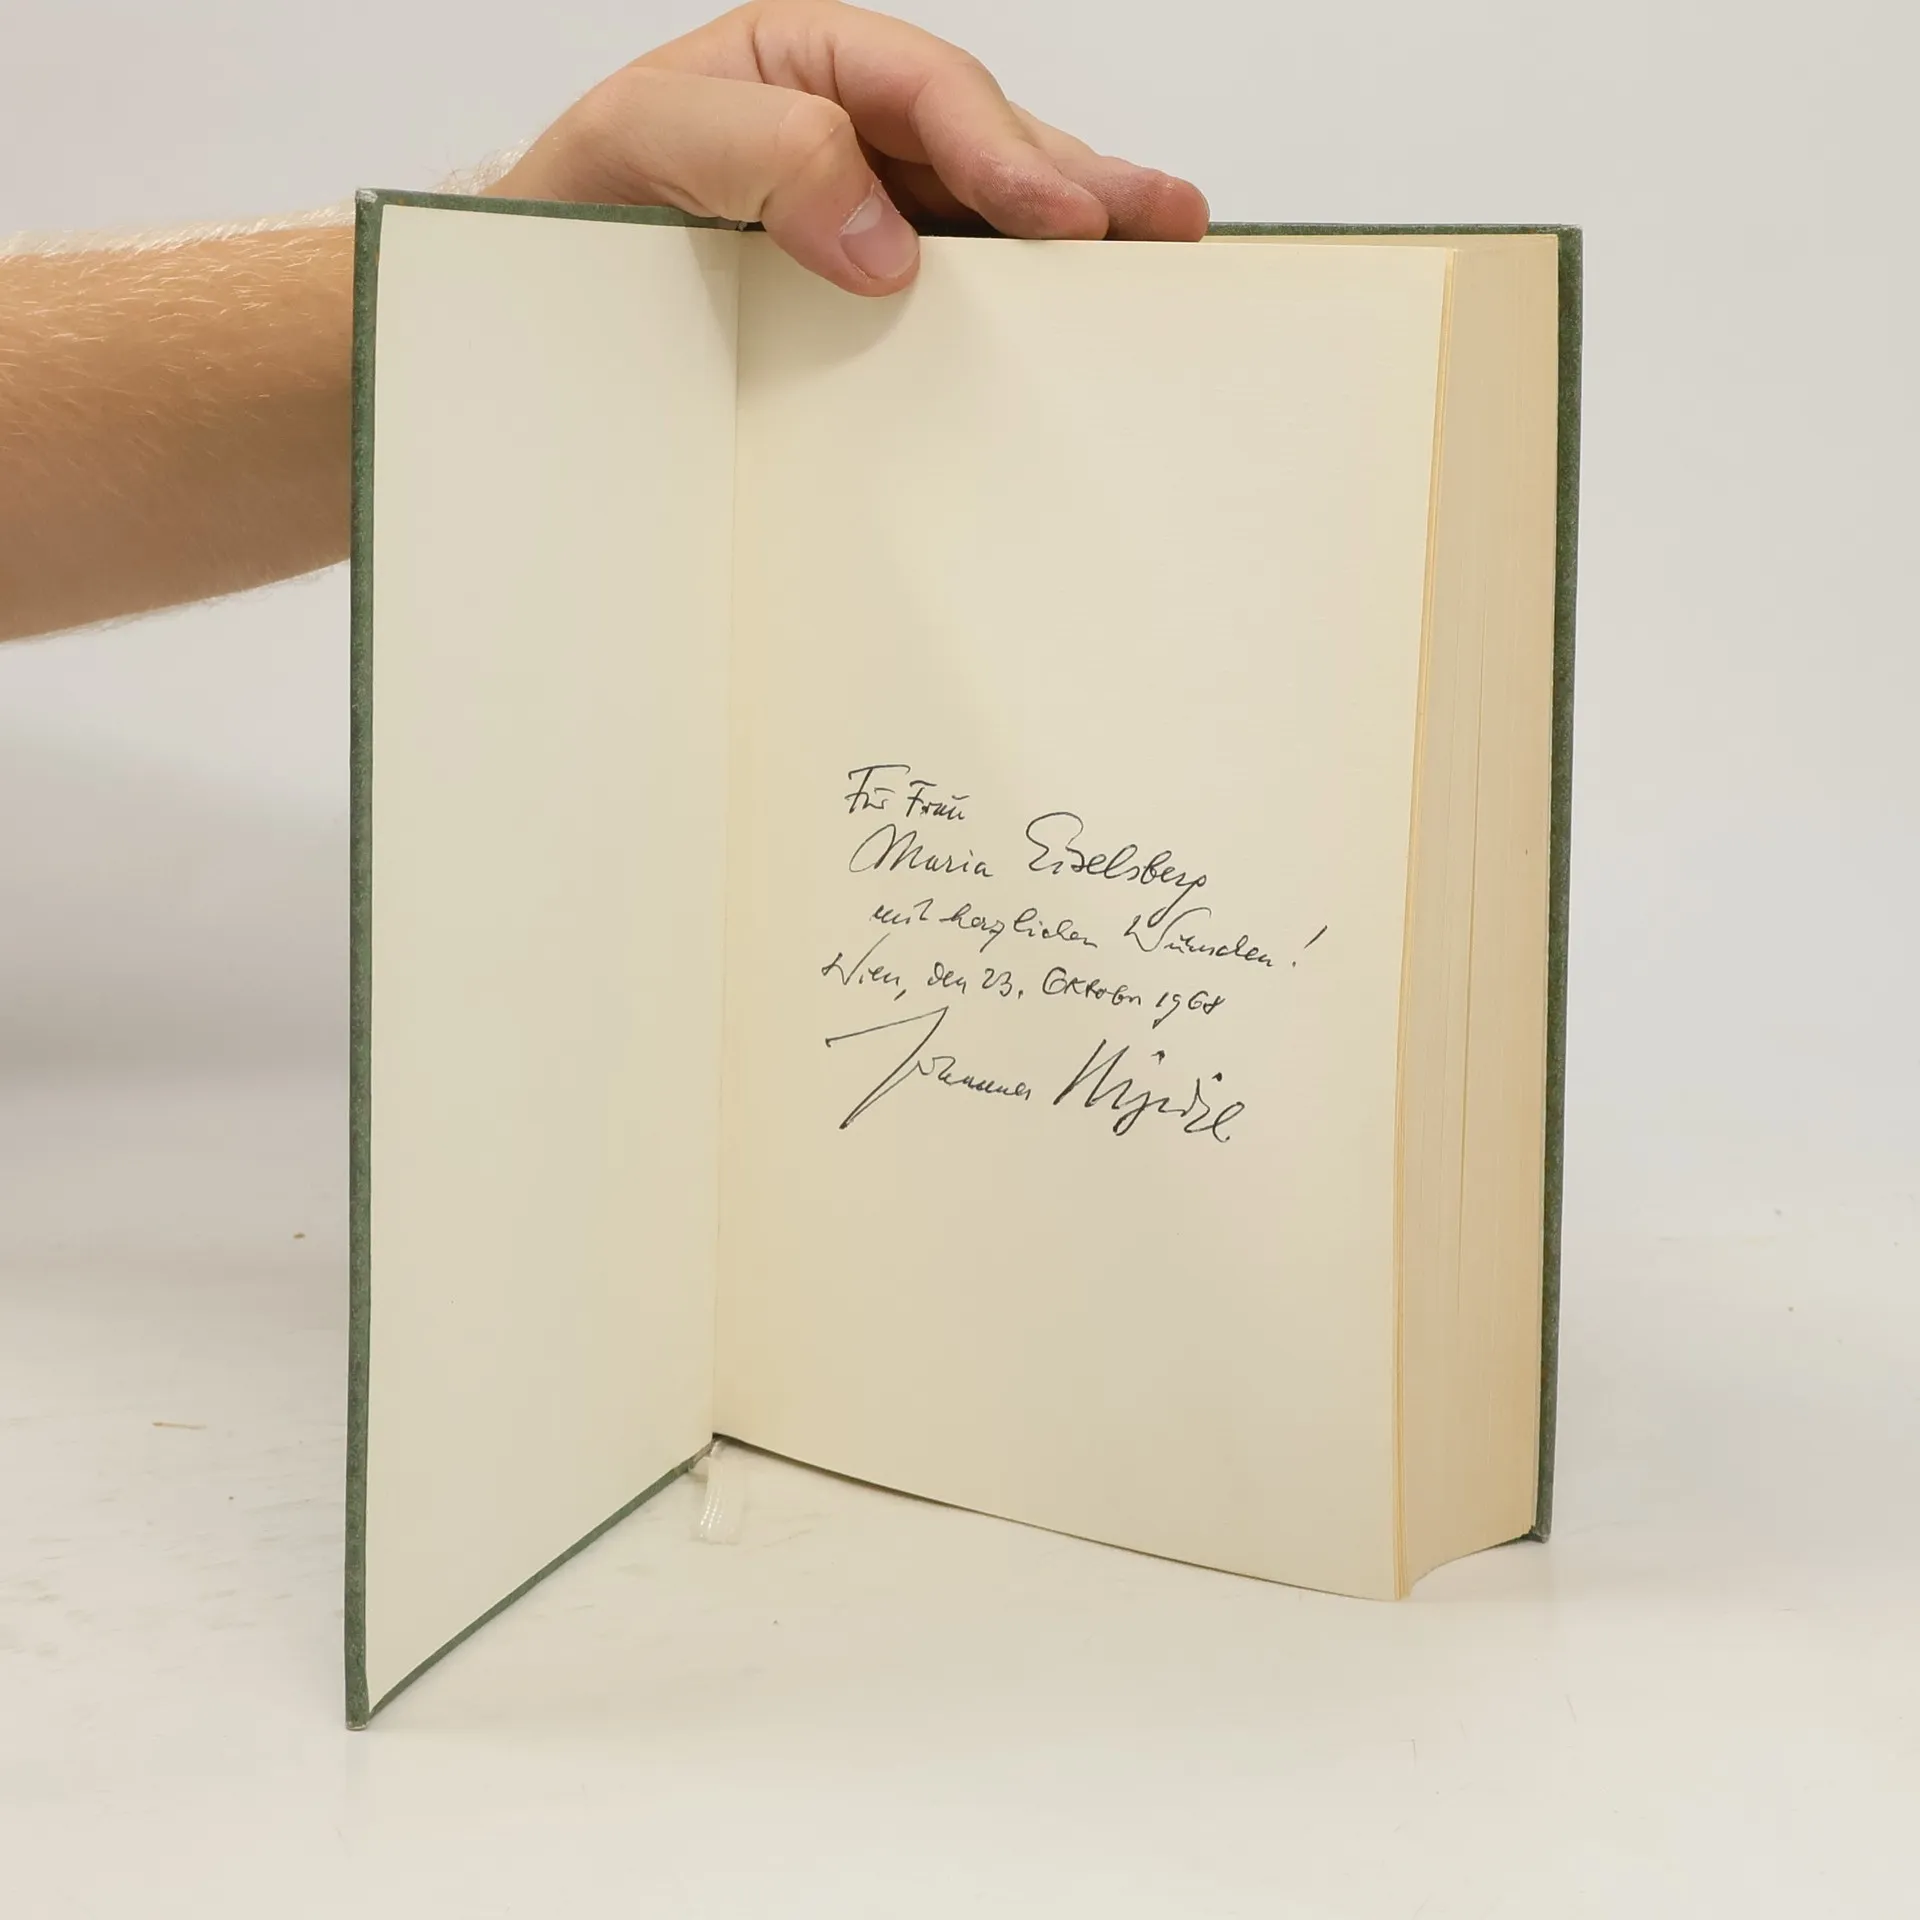 Für Frau
Maria Eiselsberg
mit herzlichen Wünschen!
Wien, den 23. Oktober 1968
Johannes